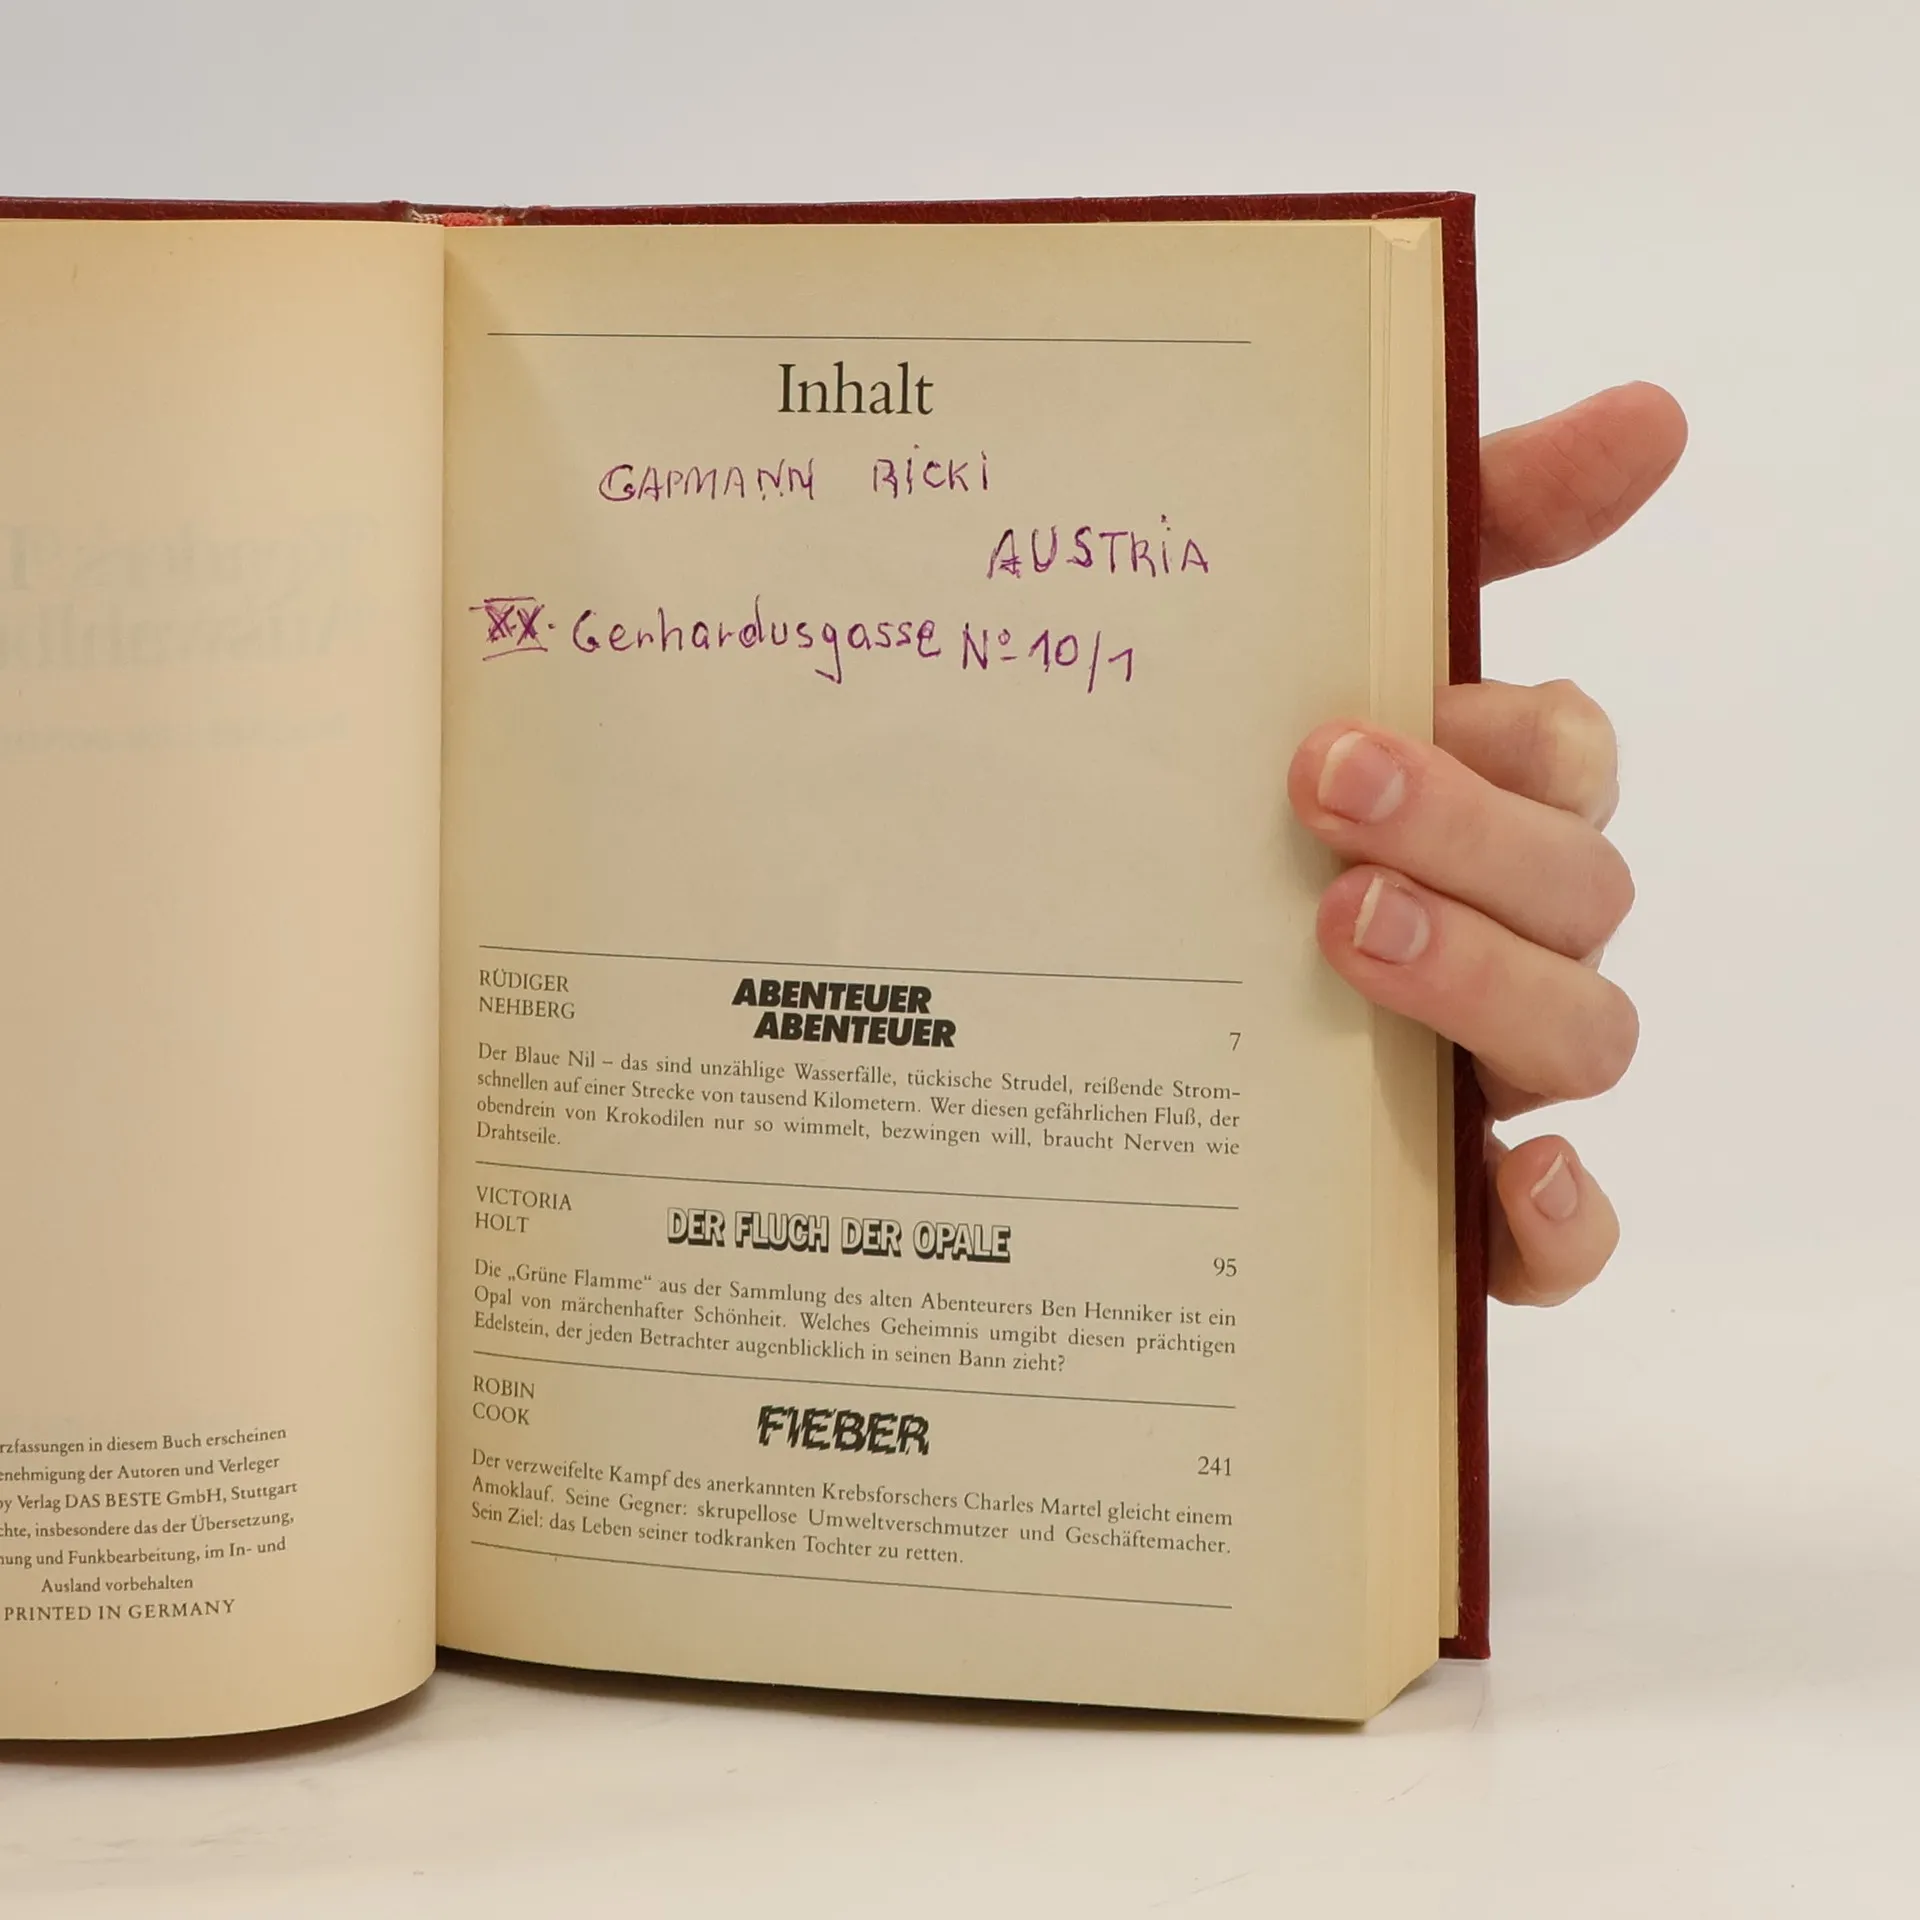 rzfassungen in diesem Buch erscheinen
enehmigung der Autoren und Verleger
by Verlag DAS BESTE GmbH, Stuttgart
chte, insbesondere das der Übersetzung,
nung und Funkbearbeitung, im In- und
Ausland vorbehalten
PRINTED IN GERMANY
Inhalt
GAPMANN RiCKi
AUSTRiA
XX. Gerhardusgasse Nº 10/1
RÜDIGER
NEHBERG
ABENTEUER
ABENTEUER
7
Der Blaue Nil – das sind unzählige Wasserfälle, tückische Strudel, reißende Strom-
schnellen auf einer Strecke von tausend Kilometern. Wer diesen gefährlichen Fluß, der
obendrein von Krokodilen nur so wimmelt, bezwingen will, braucht Nerven wie
Drahtseile.
VICTORIA
HOLT
DER FLUCH DER OPALE
95
Die „Grüne Flamme“ aus der Sammlung des alten Abenteurers Ben Henniker ist ein
Opal von märchenhafter Schönheit. Welches Geheimnis umgibt diesen prächtigen
Edelstein, der jeden Betrachter augenblicklich in seinen Bann zieht?
ROBIN
COOK
FIEBER
241
Der verzweifelte Kampf des anerkannten Krebsforschers Charles Martel gleicht einem
Amoklauf. Seine Gegner: skrupellose Umweltverschmutzer und Geschäftemacher.
Sein Ziel: das Leben seiner todkranken Tochter zu retten.